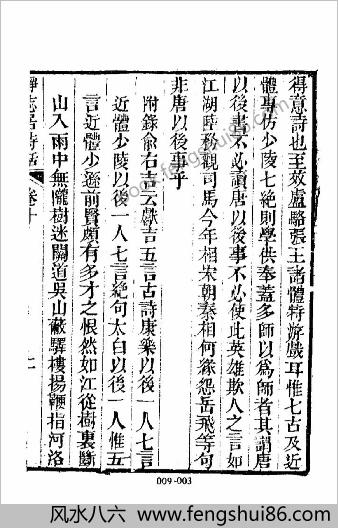 得意詩也至效盧駱張王諸體特游戲耳惟七古及近
體專仿少陵七絕則學供奉蓋多師以爲師者其謂唐
以後書不必讀唐以後事不必使此英雄欺人之言如
江湖陸務觀司馬今年相宋朝秦相何緣怨岳飛等句
非唐以後事乎
附錄俞右吉云獻吉五言古詩康樂以後一人七言
近體少陵以後一人七言絕句太白以後一人惟五
言近體少遜前賢頗有多才之恨然如江從樹裏斷
山入雨中無隴樹迷關道吳山蔽驛樓揚鞭指河洛
靜志居詩話 卷十
009-003
www.fengshui86.com
风水八六 www.fengshui86.com